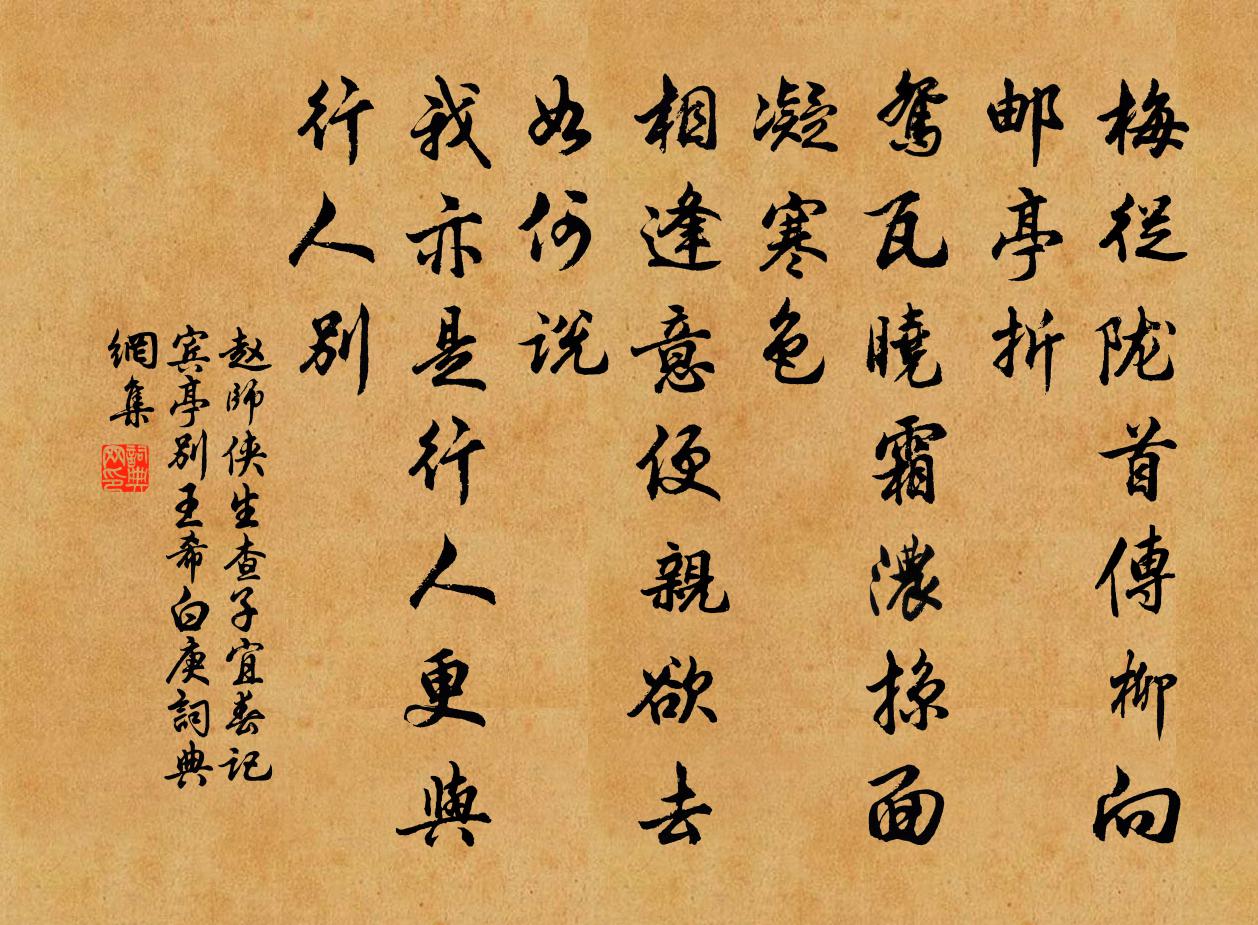 梅従陇首傳柳向
邮亭折
鴛瓦曉霜濃掠面
凝寒色
相逢意便親欲去
如何说
我亦是行人更與
行人别
赵師侠生查子宜春记
宾亭别王希白庚詞典
網集
詞典
网印